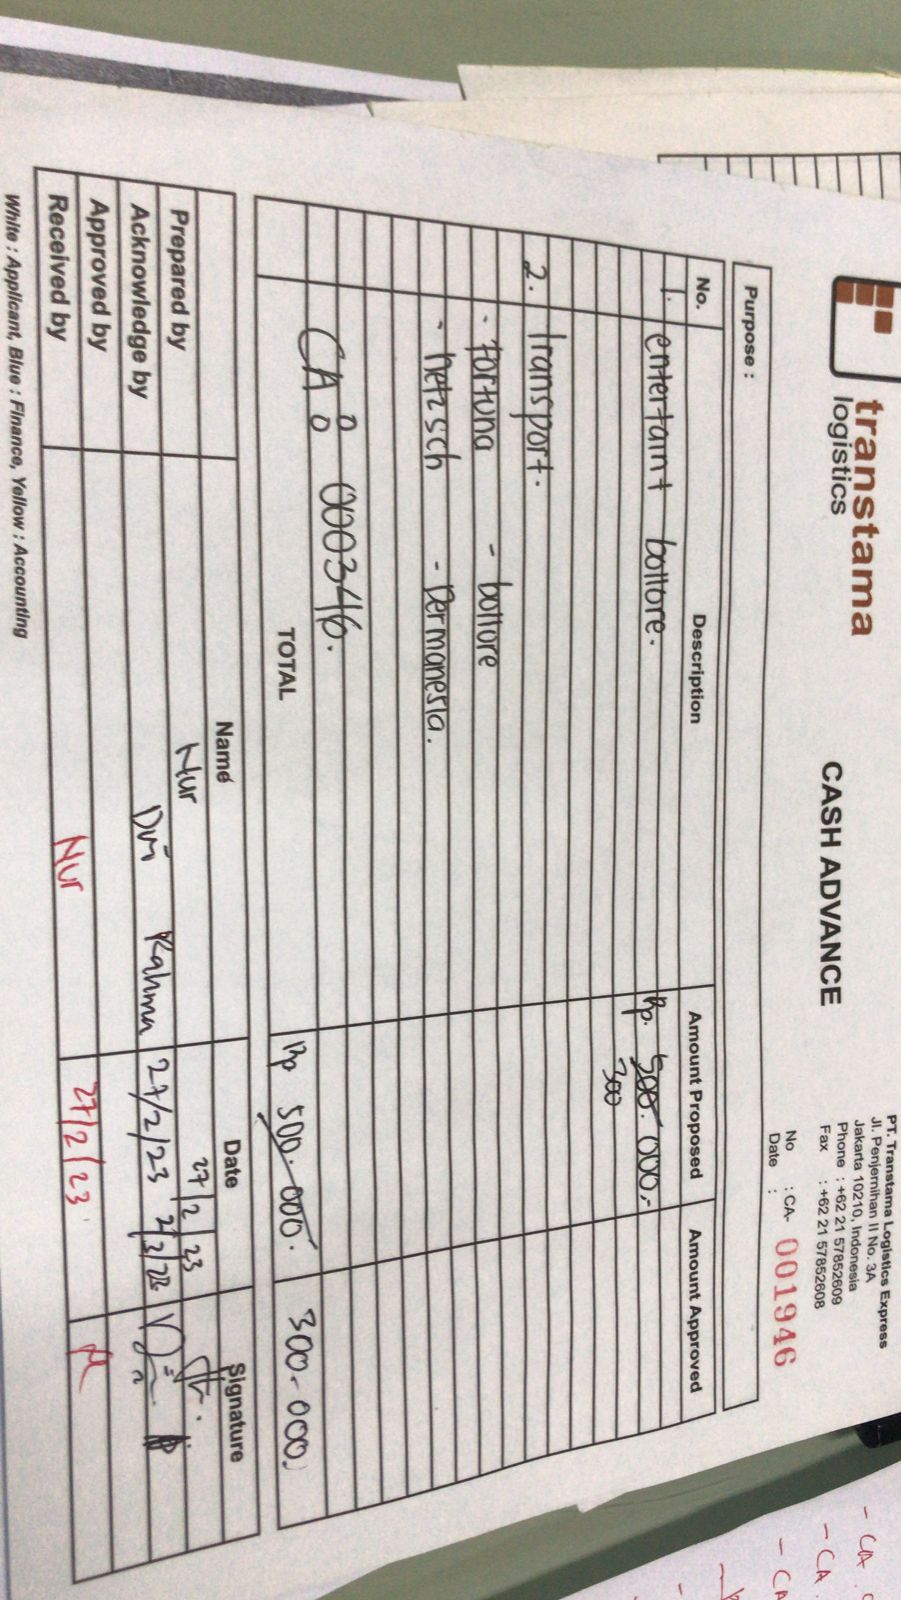 transtama
logistics
CASH ADVANCE
PT. Transtama Logistics Express
Jl. Penjernihan II No. 3A
Jakarta 10210, Indonesia
Phone : +62 21 57852609
Fax : +62 21 57852608
No : CA- 001946
Date :
Purpose :
No. Description Amount Proposed Amount Approved
1. entertaint bollore. Rp. 500.000,-
300
2. Transport.
- fortuna - bollore
- netzsch - Permanesia.
CA : 000346.
TOTAL Rp 500.000. 300.000,
Name Date Signature
Prepared by Nur 27/2/23
Acknowledge by Dwi Rahma 27/2/23 2/3/23
Approved by
Received by Nur 27/2/23
White : Applicant, Blue : Finance, Yellow : Accounting
- CA
- CA
- CA